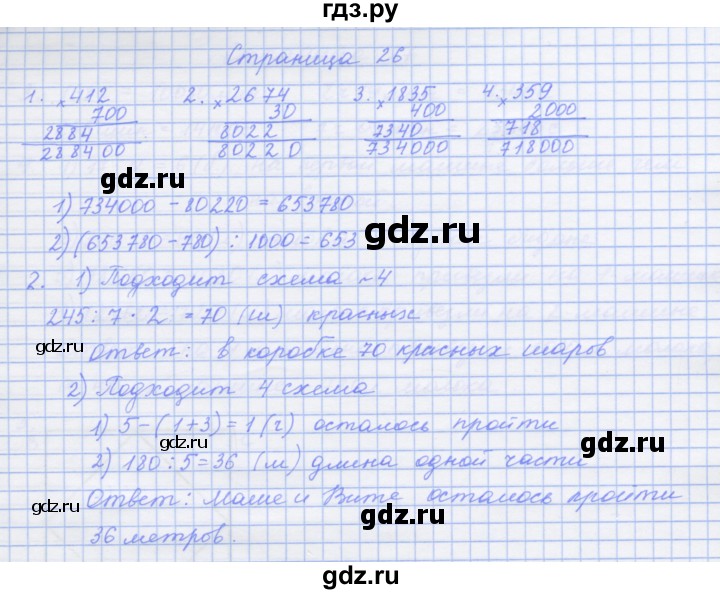 гдз.ру
Страница 26
1. ×412 2. ×2674 3. ×1835 4. ×359
700 30 400 2000
2884 8022 7340 718
288400 80220 734000 718000
gdz.ru
1) 734000 - 80220 = 653780
2) (653780 - 780) : 1000 = 653
gdz.ru
2. 1) Подходит схема №4
245 : 7 · 2 = 70 (ш) красных
gdz.ru gdz.ru
Ответ: в коробке 70 красных шаров
2) Подходит 4 схема
1) 5 - (1+3) = 1 (ч) осталось пройти
gdz.ru gdz.ru
2) 180 : 5 = 36 (м) длина одной части
Ответ: Маше и Вите осталось пройти
36 метров.
gdz.ru
gdz.ru